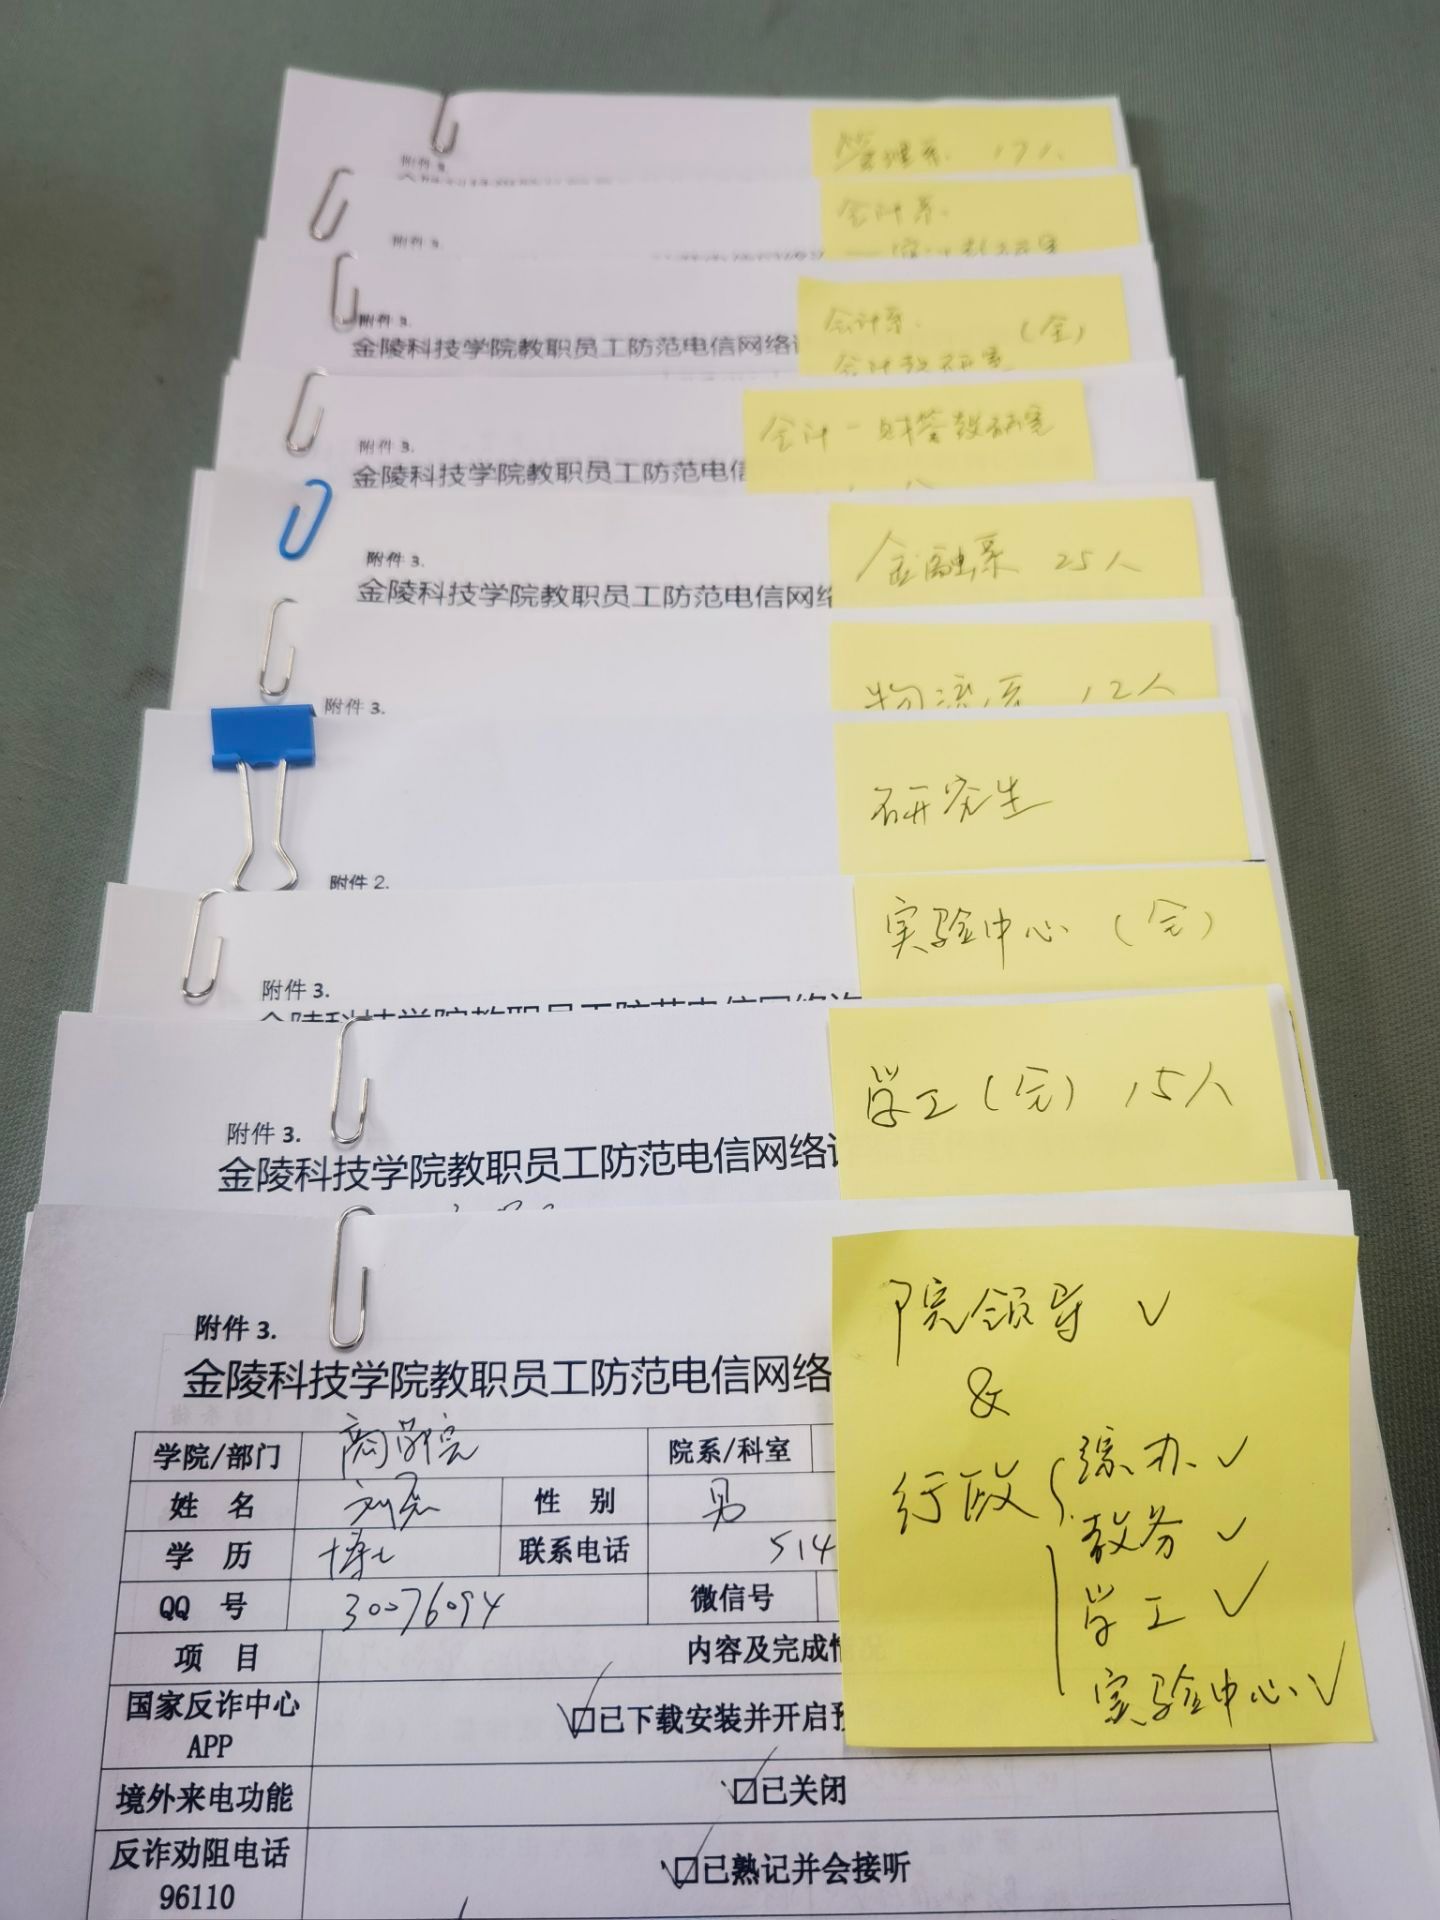 附件 3.
管理系 17人
附件 3.
会计系
附件 3.
金陵科技学院教职员工防范电信网络
会计系 (全)
会计教研室
附件 3.
金陵科技学院教职员工防范电信
会计-财管教研室
附件 3.
金陵科技学院教职员工防范电信网络
金融系 25人
附件 3.
物流系 12人
附件 2.
研究生
附件 3.
金陵科技学院教职员工防范电信网络
实验中心 (全)
附件 3.
金陵科技学院教职员工防范电信网络
学工 (完) 15人
附件 3.
金陵科技学院教职员工防范电信网络
院领导 ✓
&
行政
综办 ✓
教务 ✓
学工 ✓
实验中心 ✓
学院/部门 商学院 院系/科室
姓 名 刘亮 性 别 男
学 历 博士 联系电话 514
QQ 号 30076094 微信号
项 目 内容及完成
国家反诈中心 APP ☑已下载安装并开启
境外来电功能 ☑已关闭
反诈劝阻电话 96110 ☑已熟记并会接听